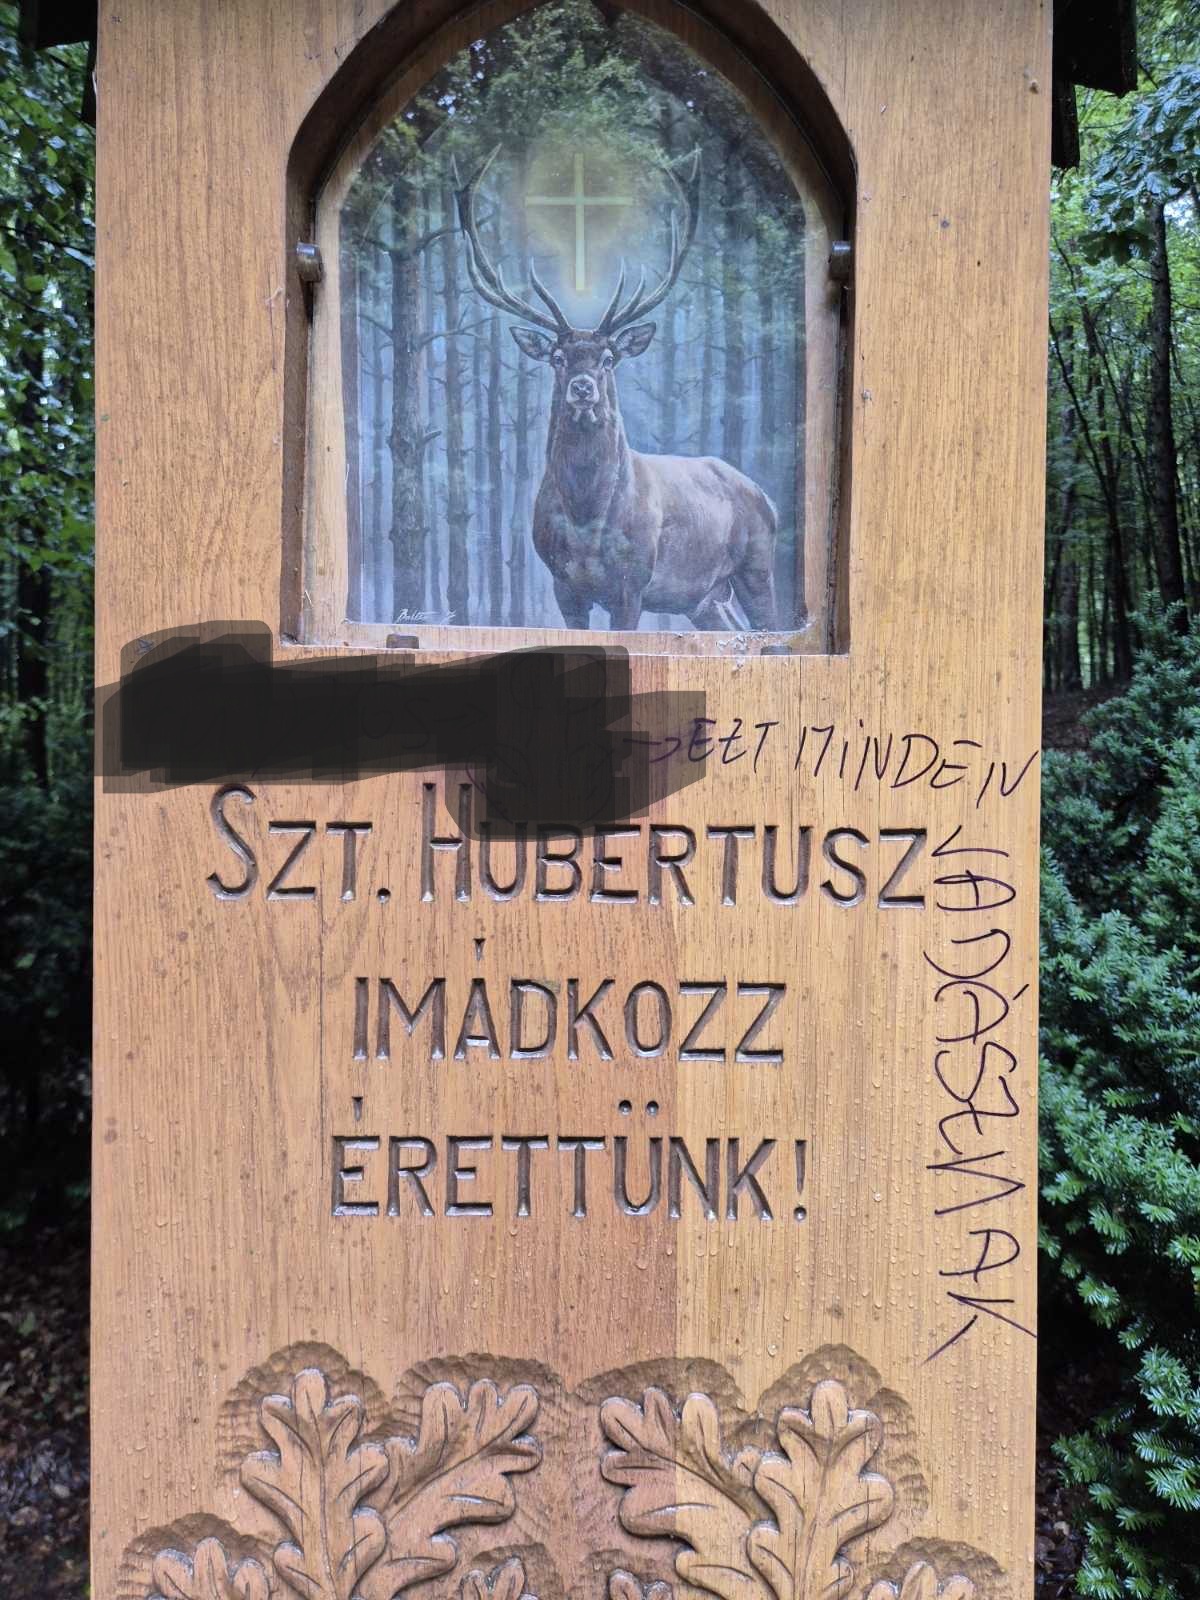 →EZT MINDEN
VADÁSZNAK
SZT. HUBERTUSZ
IMÁDKOZZ
ÉRETTÜNK!